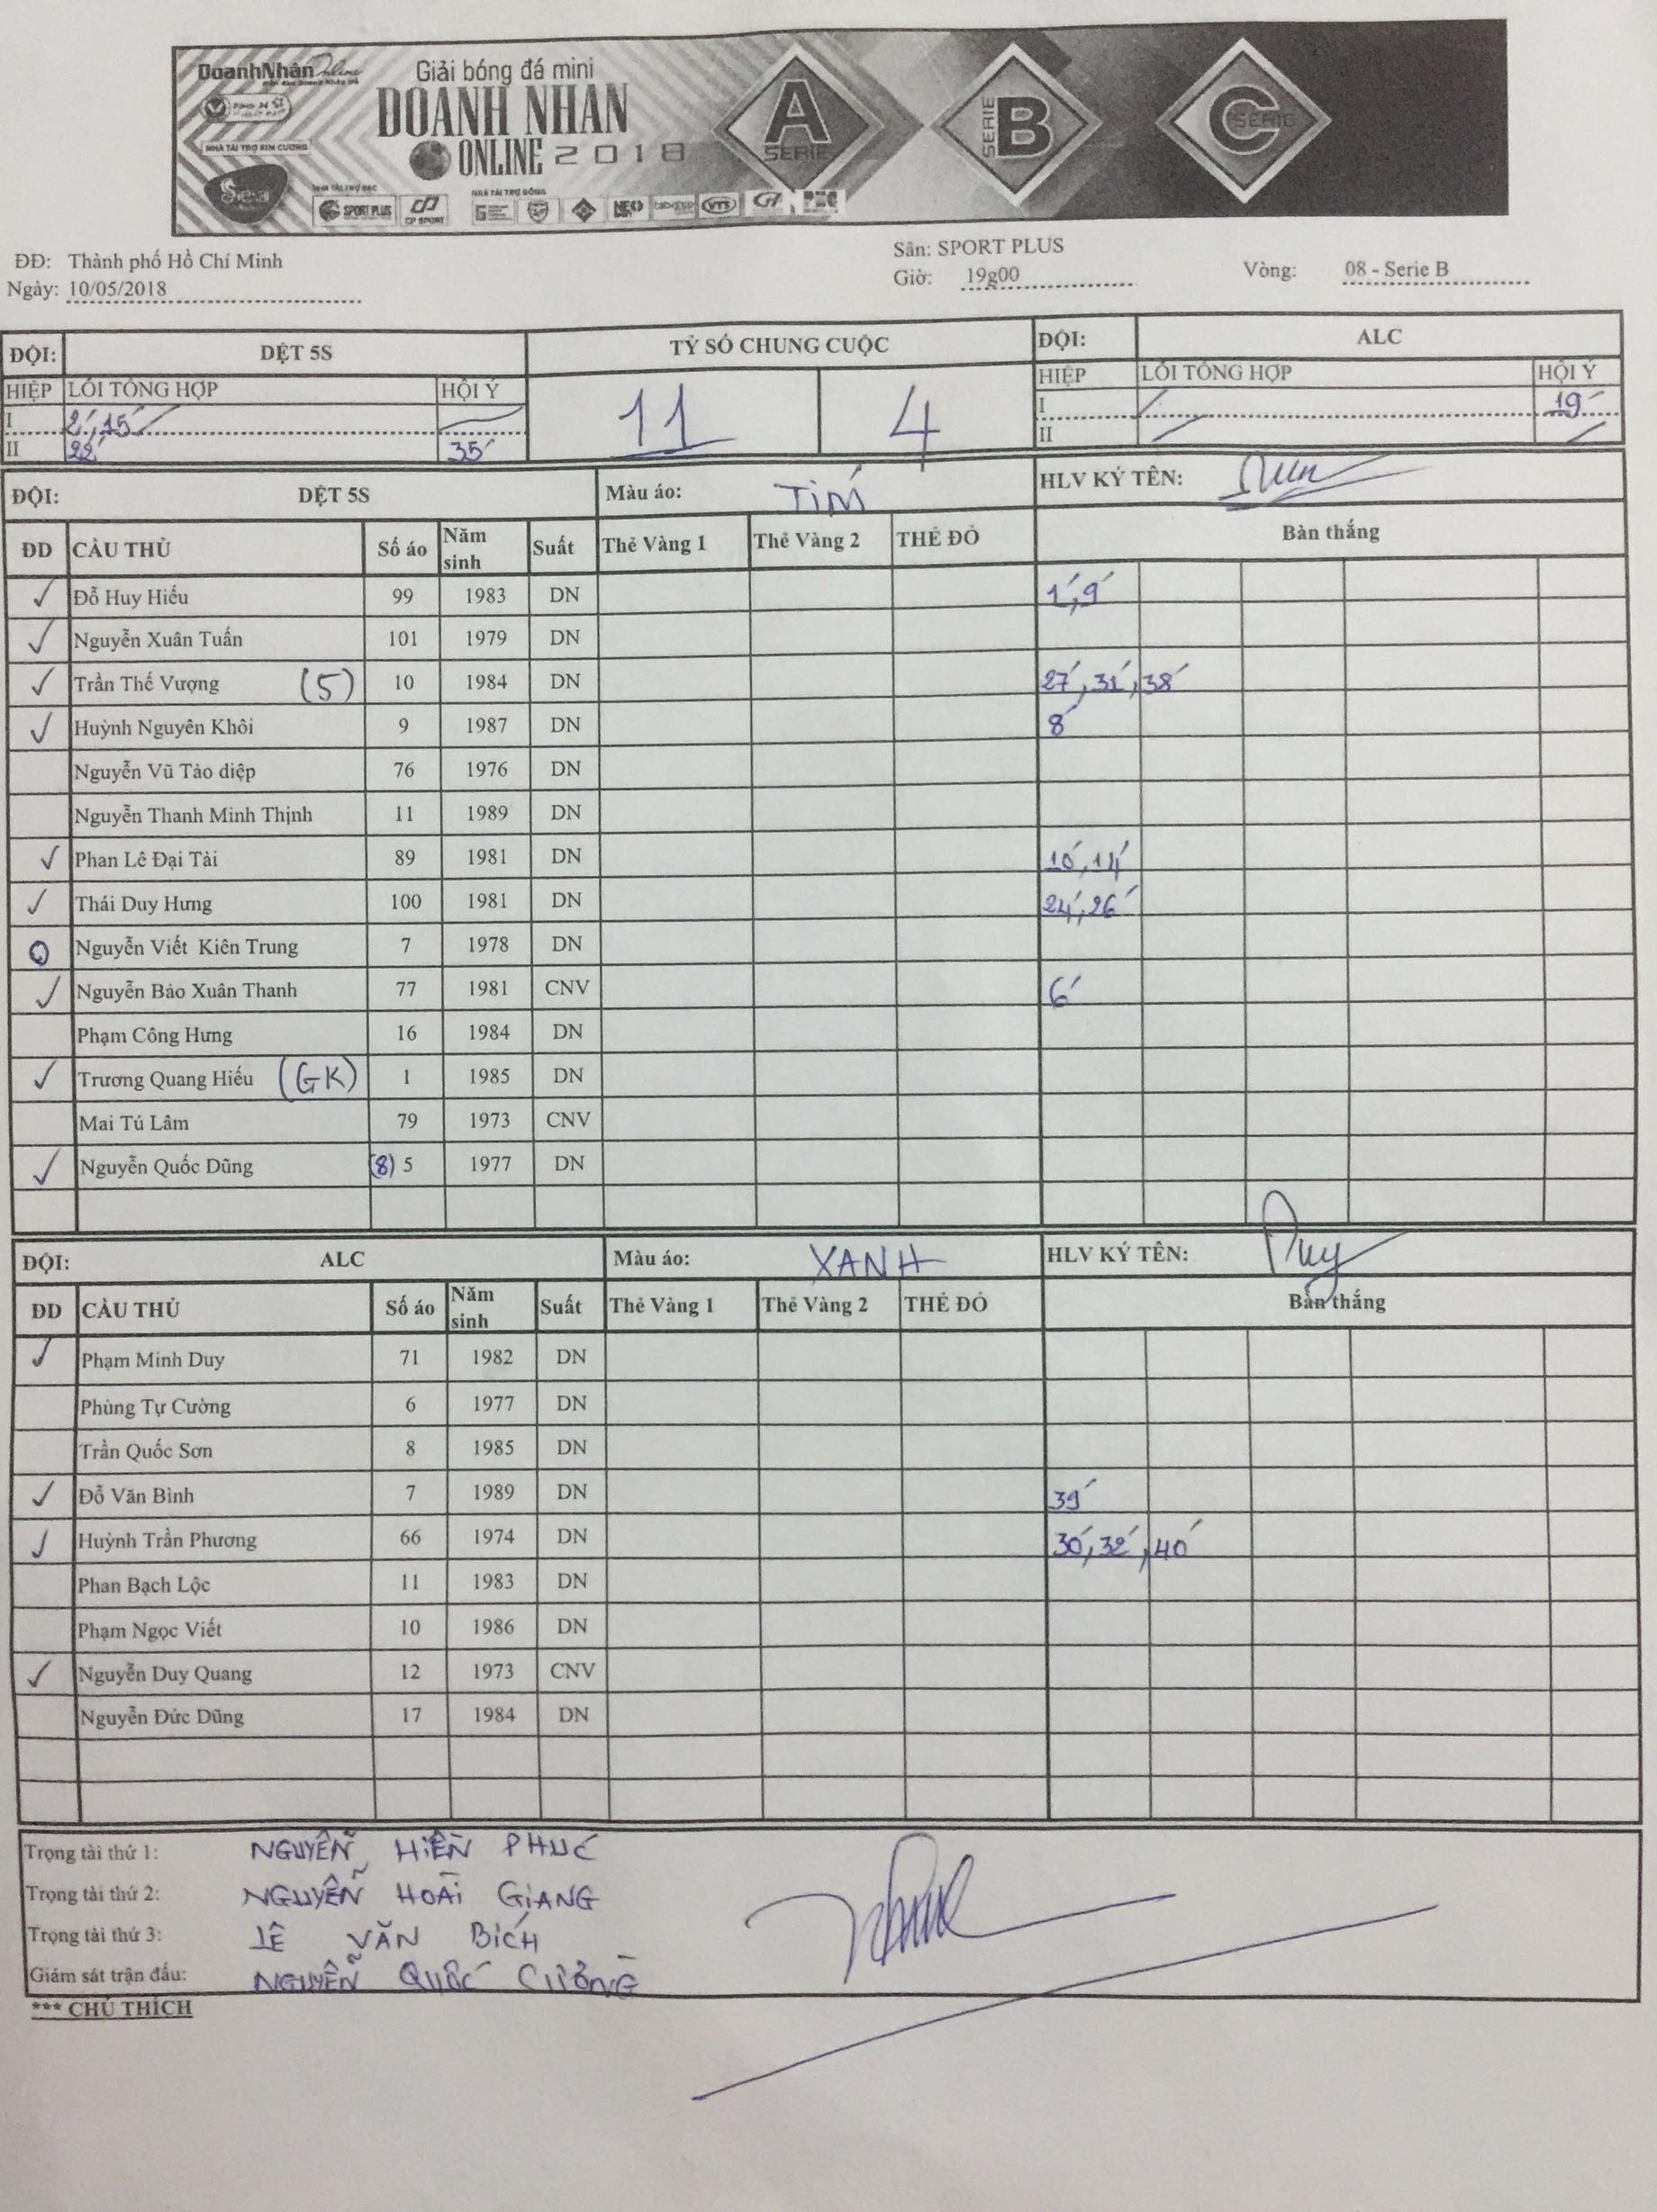 DoanhNhân Online
Giải bóng đá mini
DOANH NHAN
ONLINE 2018
A SERIE
SERIE B
C SERIE
NHÀ TÀI TRỢ KIM CƯƠNG
NHÀ TÀI TRỢ BẠC
NHÀ TÀI TRỢ ĐỒNG
SPORT PLUS CP SPORT NEO VTS
ĐĐ: Thành phố Hồ Chí Minh Sân: SPORT PLUS
Ngày: 10/05/2018 Giờ: 19g00 Vòng: 08 - Serie B
ĐỘI: DỆT 5S TỶ SỐ CHUNG CUỘC ĐỘI: ALC
HIỆP LỖI TỔNG HỢP HỘI Ý 11 4 HIỆP LỖI TỔNG HỢP HỘI Ý
I 2', 15' I 19'
II 22' 35' II
ĐỘI: DỆT 5S Màu áo: TÍM HLV KÝ TÊN:
ĐD CẦU THỦ Số áo Năm sinh Suất Thẻ Vàng 1 Thẻ Vàng 2 THẺ ĐỎ Bàn thắng
✓ Đỗ Huy Hiếu 99 1983 DN 1', 9'
✓ Nguyễn Xuân Tuấn 101 1979 DN
✓ Trần Thế Vượng (5) 10 1984 DN 27', 31', 38'
✓ Huỳnh Nguyên Khôi 9 1987 DN 8'
Nguyễn Vũ Tảo diệp 76 1976 DN
Nguyễn Thanh Minh Thịnh 11 1989 DN
✓ Phan Lê Đại Tài 89 1981 DN 10', 14'
✓ Thái Duy Hưng 100 1981 DN 24', 26'
Nguyễn Viết Kiên Trung 7 1978 DN
✓ Nguyễn Bảo Xuân Thanh 77 1981 CNV 6'
Phạm Công Hưng 16 1984 DN
✓ Trương Quang Hiếu (GK) 1 1985 DN
Mai Tú Lâm 79 1973 CNV
✓ Nguyễn Quốc Dũng (8) 5 1977 DN
ĐỘI: ALC Màu áo: XANH HLV KÝ TÊN: Duy
ĐD CẦU THỦ Số áo Năm sinh Suất Thẻ Vàng 1 Thẻ Vàng 2 THẺ ĐỎ Bàn thắng
✓ Phạm Minh Duy 71 1982 DN
Phùng Tự Cường 6 1977 DN
Trần Quốc Sơn 8 1985 DN
✓ Đỗ Văn Bình 7 1989 DN 39'
✓ Huỳnh Trần Phương 66 1974 DN 30', 32', 40'
Phan Bạch Lộc 11 1983 DN
Phạm Ngọc Viết 10 1986 DN
✓ Nguyễn Duy Quang 12 1973 CNV
Nguyễn Đức Dũng 17 1984 DN
Trọng tài thứ 1: NGUYỄN HIỀN PHÚC
Trọng tài thứ 2: NGUYỄN HOÀI GIANG
Trọng tài thứ 3: LÊ VĂN BÍCH
Giám sát trận đấu: NGUYỄN QUỐC CƯỜNG
*** CHÚ THÍCH